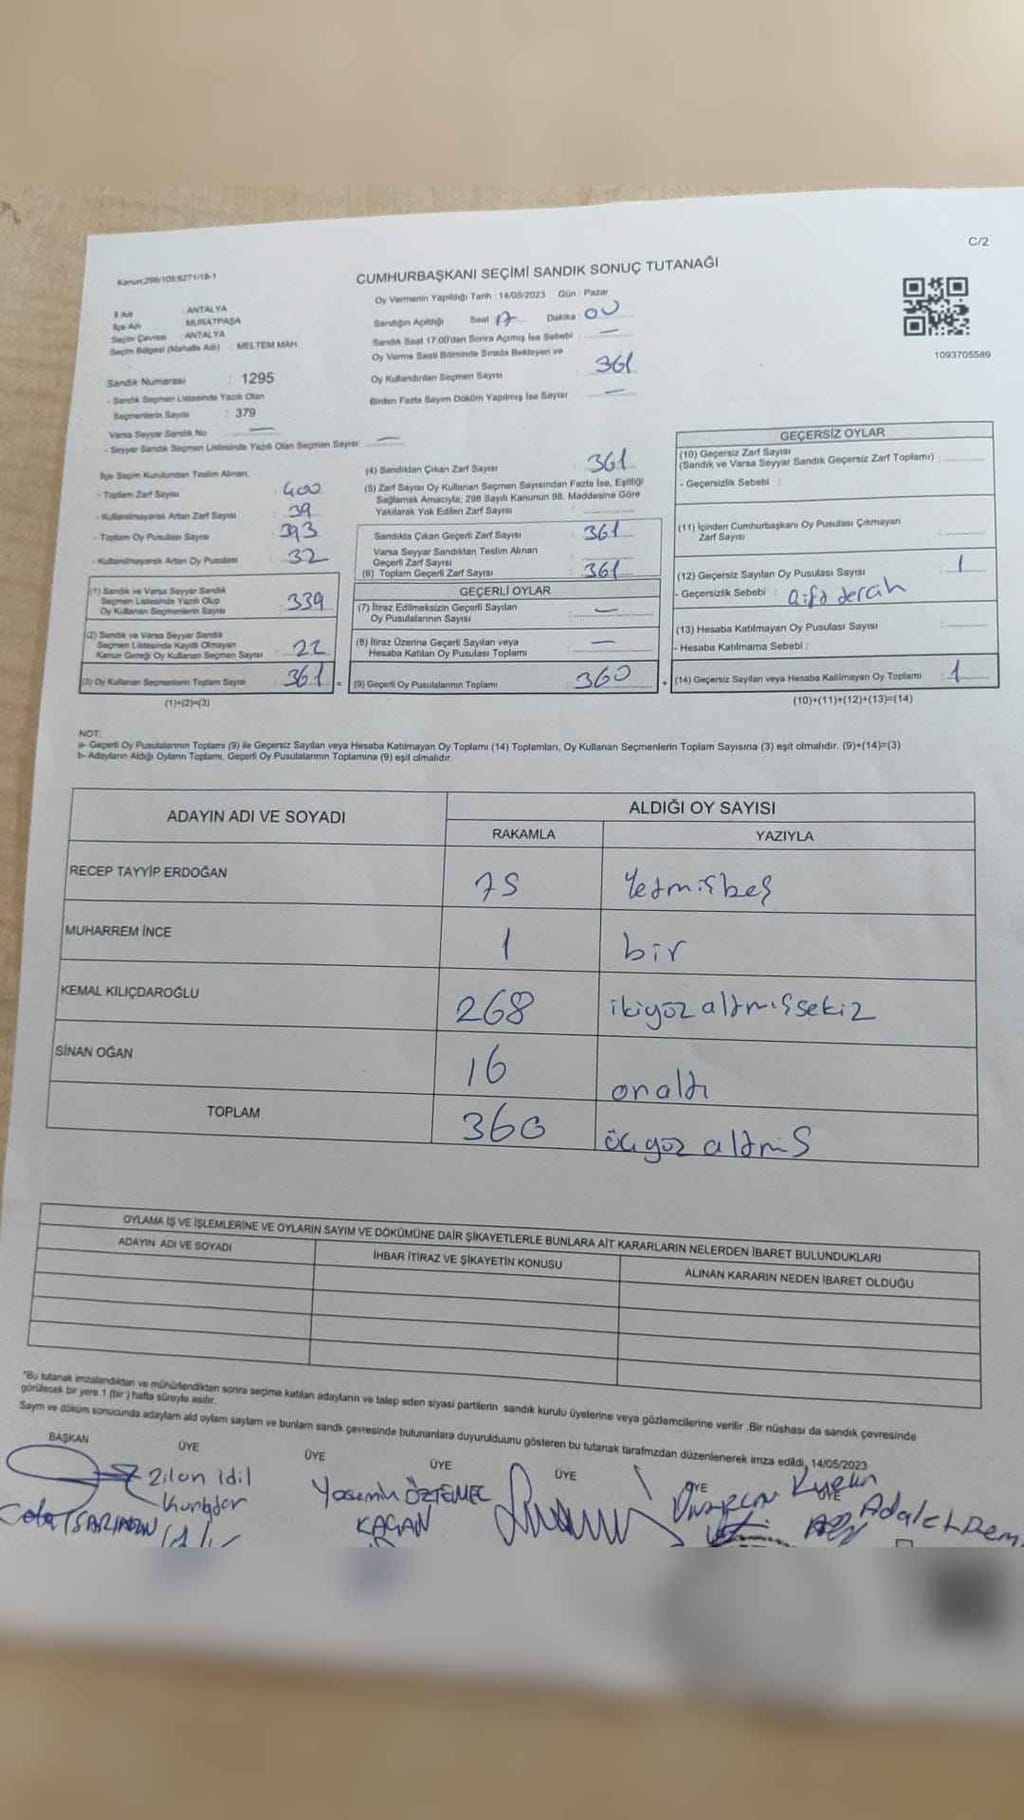 C/2
Kanun:298/105:6271/18-1
CUMHURBAŞKANI SEÇİMİ SANDIK SONUÇ TUTANAĞI
İl Adı : ANTALYA
İlçe Adı : MURATPAŞA
Seçim Çevresi : ANTALYA
Seçim Bölgesi (Mahalle Adı) : MELTEM MAH
Sandık Numarası : 1295
- Sandık Seçmen Listesinde Yazılı Olan
Seçmenlerin Sayısı : 379
Varsa Seyyar Sandık No : —
- Seyyar Sandık Seçmen Listesinde Yazılı Olan Seçmen Sayısı : —
Oy Vermenin Yapıldığı Tarih : 14/05/2023 Gün : Pazar
Sandığın Açıldığı Saat 17 Dakika 00
Sandık Saat 17.00'den Sonra Açılmış İse Sebebi : —
Oy Verme Saati Bitiminde Sırada Bekleyen ve
Oy Kullandırılan Seçmen Sayısı 361
Birden Fazla Sayım Döküm Yapılmış İse Sayısı —
1093705589
İlçe Seçim Kurulundan Teslim Alınan,
- Toplam Zarf Sayısı : 400
- Kullanılmayarak Artan Zarf Sayısı : 39
- Toplam Oy Pusulası Sayısı : 393
- Kullanılmayarak Artan Oy Pusulası : 32
(1) Sandık ve Varsa Seyyar Sandık
Seçmen Listesinde Yazılı Olup
Oy Kullanan Seçmenlerin Sayısı : 339
(2) Sandık ve Varsa Seyyar Sandık
Seçmen Listesinde Kayıtlı Olmayan
Kanun Gereği Oy Kullanan Seçmen Sayısı : 22
(3) Oy Kullanan Seçmenlerin Toplam Sayısı : 361
(1)+(2)=(3)
(4) Sandıktan Çıkan Zarf Sayısı : 361
(5) Zarf Sayısı Oy Kullanan Seçmen Sayısından Fazla İse, Eşitliği
Sağlamak Amacıyla; 298 Sayılı Kanunun 98. Maddesine Göre
Yakılarak Yok Edilen Zarf Sayısı :
Sandıkta Çıkan Geçerli Zarf Sayısı : 361
Varsa Seyyar Sandıktan Teslim Alınan
Geçerli Zarf Sayısı
(6) Toplam Geçerli Zarf Sayısı : 361
GEÇERLİ OYLAR
(7) İtiraz Edilmeksizin Geçerli Sayılan
Oy Pusulalarının Sayısı : —
(8) İtiraz Üzerine Geçerli Sayılan veya
Hesaba Katılan Oy Pusulası Toplamı : —
= (9) Geçerli Oy Pusulalarının Toplamı : 360
GEÇERSİZ OYLAR
(10) Geçersiz Zarf Sayısı
(Sandık ve Varsa Seyyar Sandık Geçersiz Zarf Toplamı) :
- Geçersizlik Sebebi :
(11) İçinden Cumhurbaşkanı Oy Pusulası Çıkmayan
Zarf Sayısı :
(12) Geçersiz Sayılan Oy Pusulası Sayısı : 1
- Geçersizlik Sebebi :
(13) Hesaba Katılmayan Oy Pusulası Sayısı :
- Hesaba Katılmama Sebebi :
+ (14) Geçersiz Sayılan veya Hesaba Katılmayan Oy Toplamı : 1
(10)+(11)+(12)+(13)=(14)
NOT:
a- Geçerli Oy Pusulalarının Toplamı (9) ile Geçersiz Sayılan veya Hesaba Katılmayan Oy Toplamı (14) Toplamları, Oy Kullanan Seçmenlerin Toplam Sayısına (3) eşit olmalıdır. (9)+(14)=(3)
b- Adayların Aldığı Oyların Toplamı, Geçerli Oy Pusulalarının Toplamına (9) eşit olmalıdır.
ADAYIN ADI VE SOYADI
ALDIĞI OY SAYISI
RAKAMLA YAZIYLA
RECEP TAYYİP ERDOĞAN 75 Yetmişbeş
MUHARREM İNCE 1 bir
KEMAL KILIÇDAROĞLU 268 ikiyüz altmışsekiz
SİNAN OĞAN 16 onaltı
TOPLAM 360 üçyüz altmış
OYLAMA İŞ VE İŞLEMLERİNE VE OYLARIN SAYIM VE DÖKÜMÜNE DAİR ŞİKAYETLERLE BUNLARA AİT KARARLARIN NELERDEN İBARET BULUNDUKLARI
ADAYIN ADI VE SOYADI İHBAR İTİRAZ VE ŞİKAYETİN KONUSU ALINAN KARARIN NEDEN İBARET OLDUĞU
*Bu tutanak imzalandıktan ve mühürlendikten sonra seçime katılan adayların ve talep eden siyasi partilerin sandık kurulu üyelerine veya gözlemcilerine verilir .Bir nüshası da sandık çevresinde
görülecek bir yere 1 (bir ) hafta süreyle asılır.
Sayım ve döküm sonucunda adayların aldı oyların sayıları ve bunların sandık çevresinde bulunanlara duyurulduunu gösteren bu tutanak tarafmzdan düzenlenerek imza edildi, 14/05/2023
BAŞKAN ÜYE ÜYE ÜYE ÜYE ÜYE ÜYE
Zilan idil
Yasemin ÖZTEMEL
KAÇAN
Adalet Dem